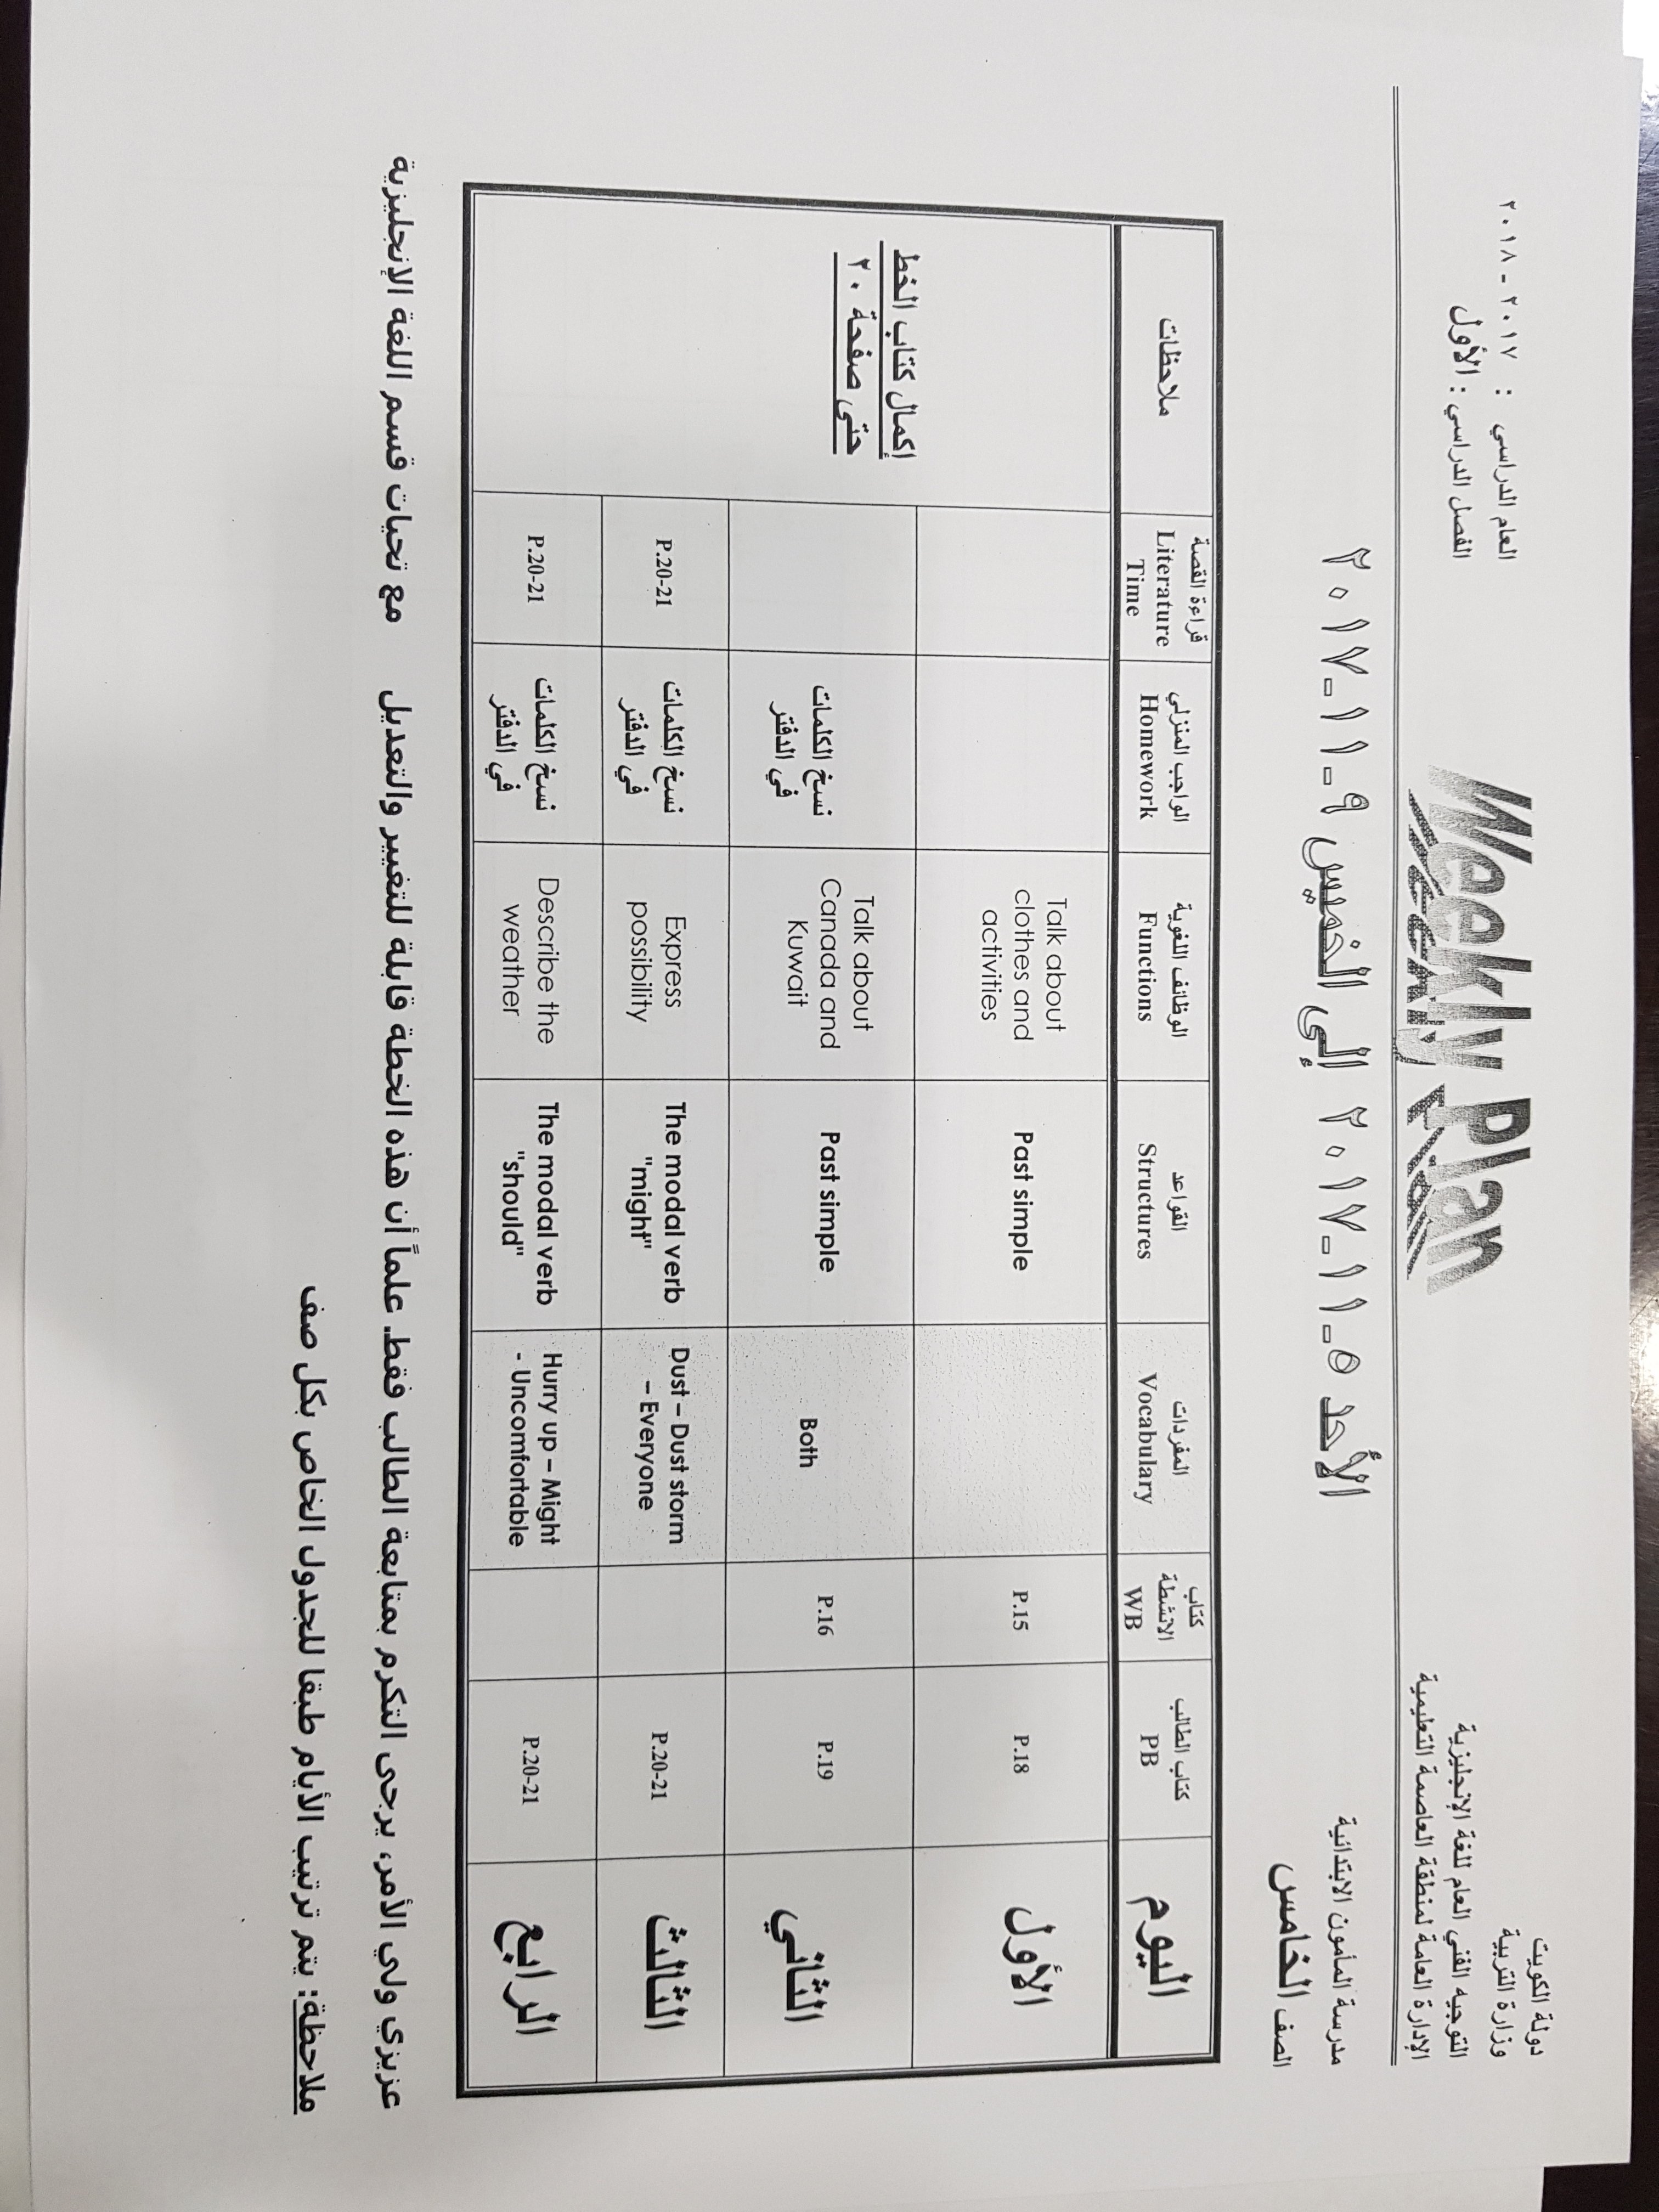 دولة الكويت
وزارة التربية
التوجيه الفني العام للغة الإنجليزية
الإدارة العامة لمنطقة العاصمة التعليمية
Weekly Plan
العام الدراسي : ٢٠١٧ - ٢٠١٨
الفصل الدراسي : الأول
مدرسة المأمون الابتدائية
الصف الخامس
الأحد ٥-١١-٢٠١٧ إلى الخميس ٩-١١-٢٠١٧
اليوم
كتاب الطالب
PB
كتاب
الأنشطة
WB
المفردات
Vocabulary
القواعد
Structures
الوظائف اللغوية
Functions
الواجب المنزلي
Homework
قراءة القصة
Literature
Time
ملاحظات
الأول
P.18
P.15
Past simple
Talk about
clothes and
activities
الثاني
P.19
P.16
Both
Past simple
Talk about
Canada and
Kuwait
نسخ الكلمات
في الدفتر
إكمال كتاب الخط
حتى صفحة ٢٠
الثالث
P.20-21
Dust – Dust storm
– Everyone
The modal verb
"might"
Express
possibility
نسخ الكلمات
في الدفتر
P.20-21
الرابع
P.20-21
Hurry up – Might
- Uncomfortable
The modal verb
"should"
Describe the
weather
نسخ الكلمات
في الدفتر
P.20-21
عزيزي ولي الأمر، يرجى التكرم بمتابعة الطالب فقط. علماً أن هذه الخطة قابلة للتغيير والتعديل مع تحيات قسم اللغة الإنجليزية
ملاحظة: يتم ترتيب الأيام طبقا للجدول الخاص بكل صف